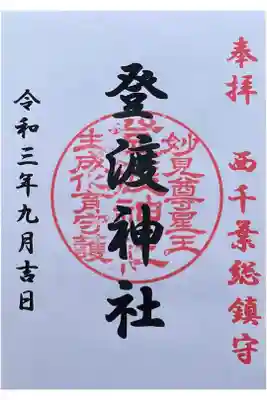 奉拝
西千葉総鎮守
登渡神社
妙見尊星王
生成化育守護
令和三年九月吉日